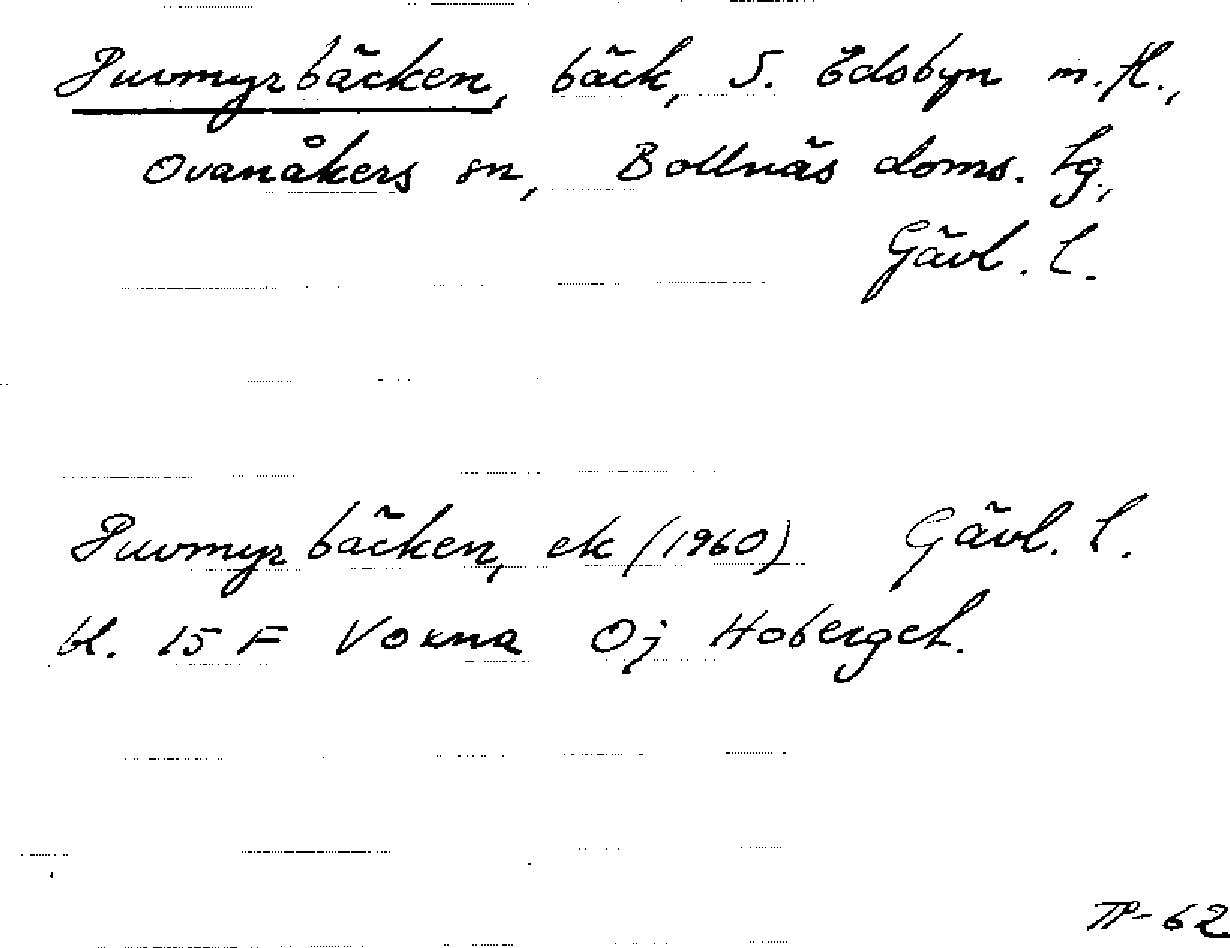 Juvmyrbäcken, bäck, S. Edsbyn m.fl.,
Ovanåkers sn, Bollnäs doms. hg,
Gävl. l.
Juvmyrbäcken, ek (1960) Gävl. l.
bl. 15 F Voxna Oj
TP-62